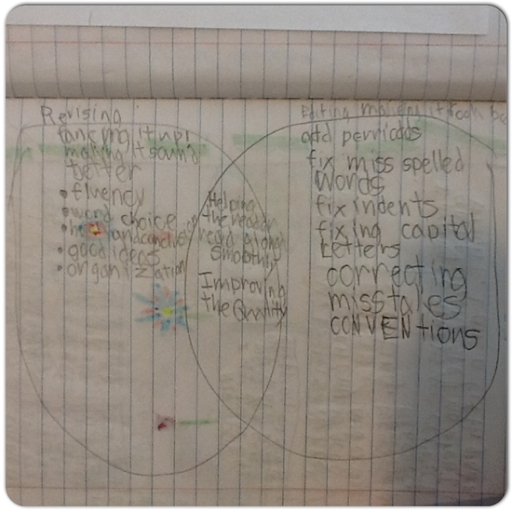 Revising
making it sound
better
• fluency
• word choice
• good ideas
• organization
Helping
the reader
read along
smoothly
Improving
the Quality
Editing making it look be
add perriods
fix miss spelled
words
fix indents
fixing capital
Letters
correcting
misstales
CONVENtions